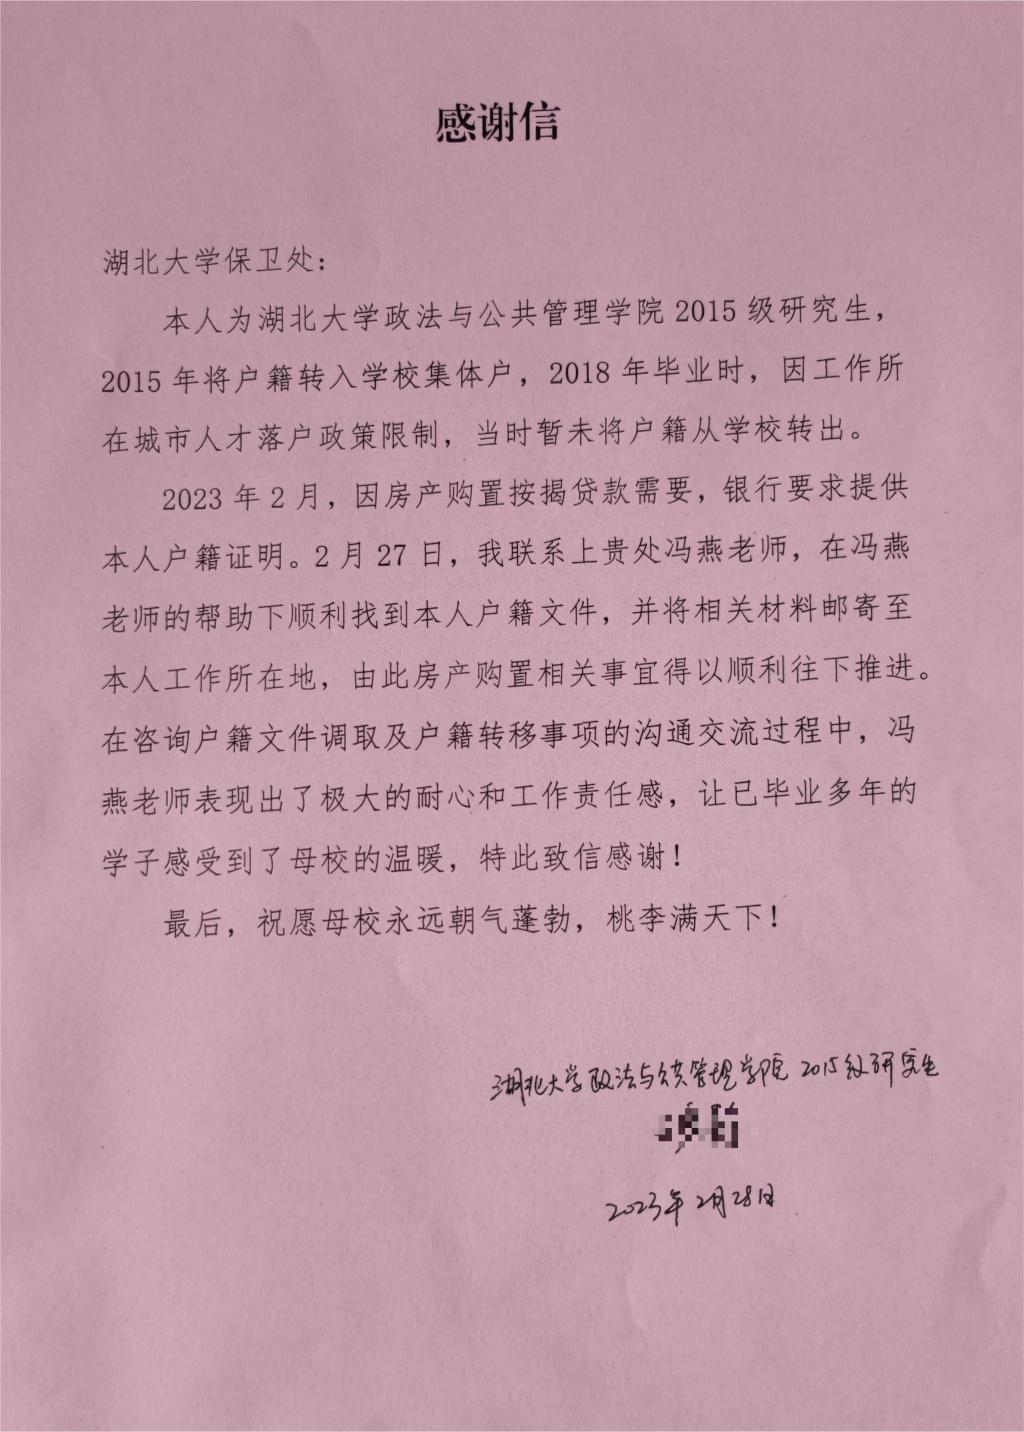 感谢信
湖北大学保卫处：
本人为湖北大学政法与公共管理学院 2015 级研究生，
2015 年将户籍转入学校集体户，2018 年毕业时，因工作所
在城市人才落户政策限制，当时暂未将户籍从学校转出。
2023 年 2 月，因房产购置按揭贷款需要，银行要求提供
本人户籍证明。2 月 27 日，我联系上贵处冯燕老师，在冯燕
老师的帮助下顺利找到本人户籍文件，并将相关材料邮寄至
本人工作所在地，由此房产购置相关事宜得以顺利往下推进。
在咨询户籍文件调取及户籍转移事项的沟通交流过程中，冯
燕老师表现出了极大的耐心和工作责任感，让已毕业多年的
学子感受到了母校的温暖，特此致信感谢！
最后，祝愿母校永远朝气蓬勃，桃李满天下！
湖北大学政法与公共管理学院 2015级研究生
2023年2月28日